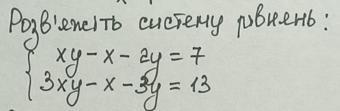 Розв'яжіть систему рівнень:
xy - x - 2y = 7
3xy - x - 3y = 13